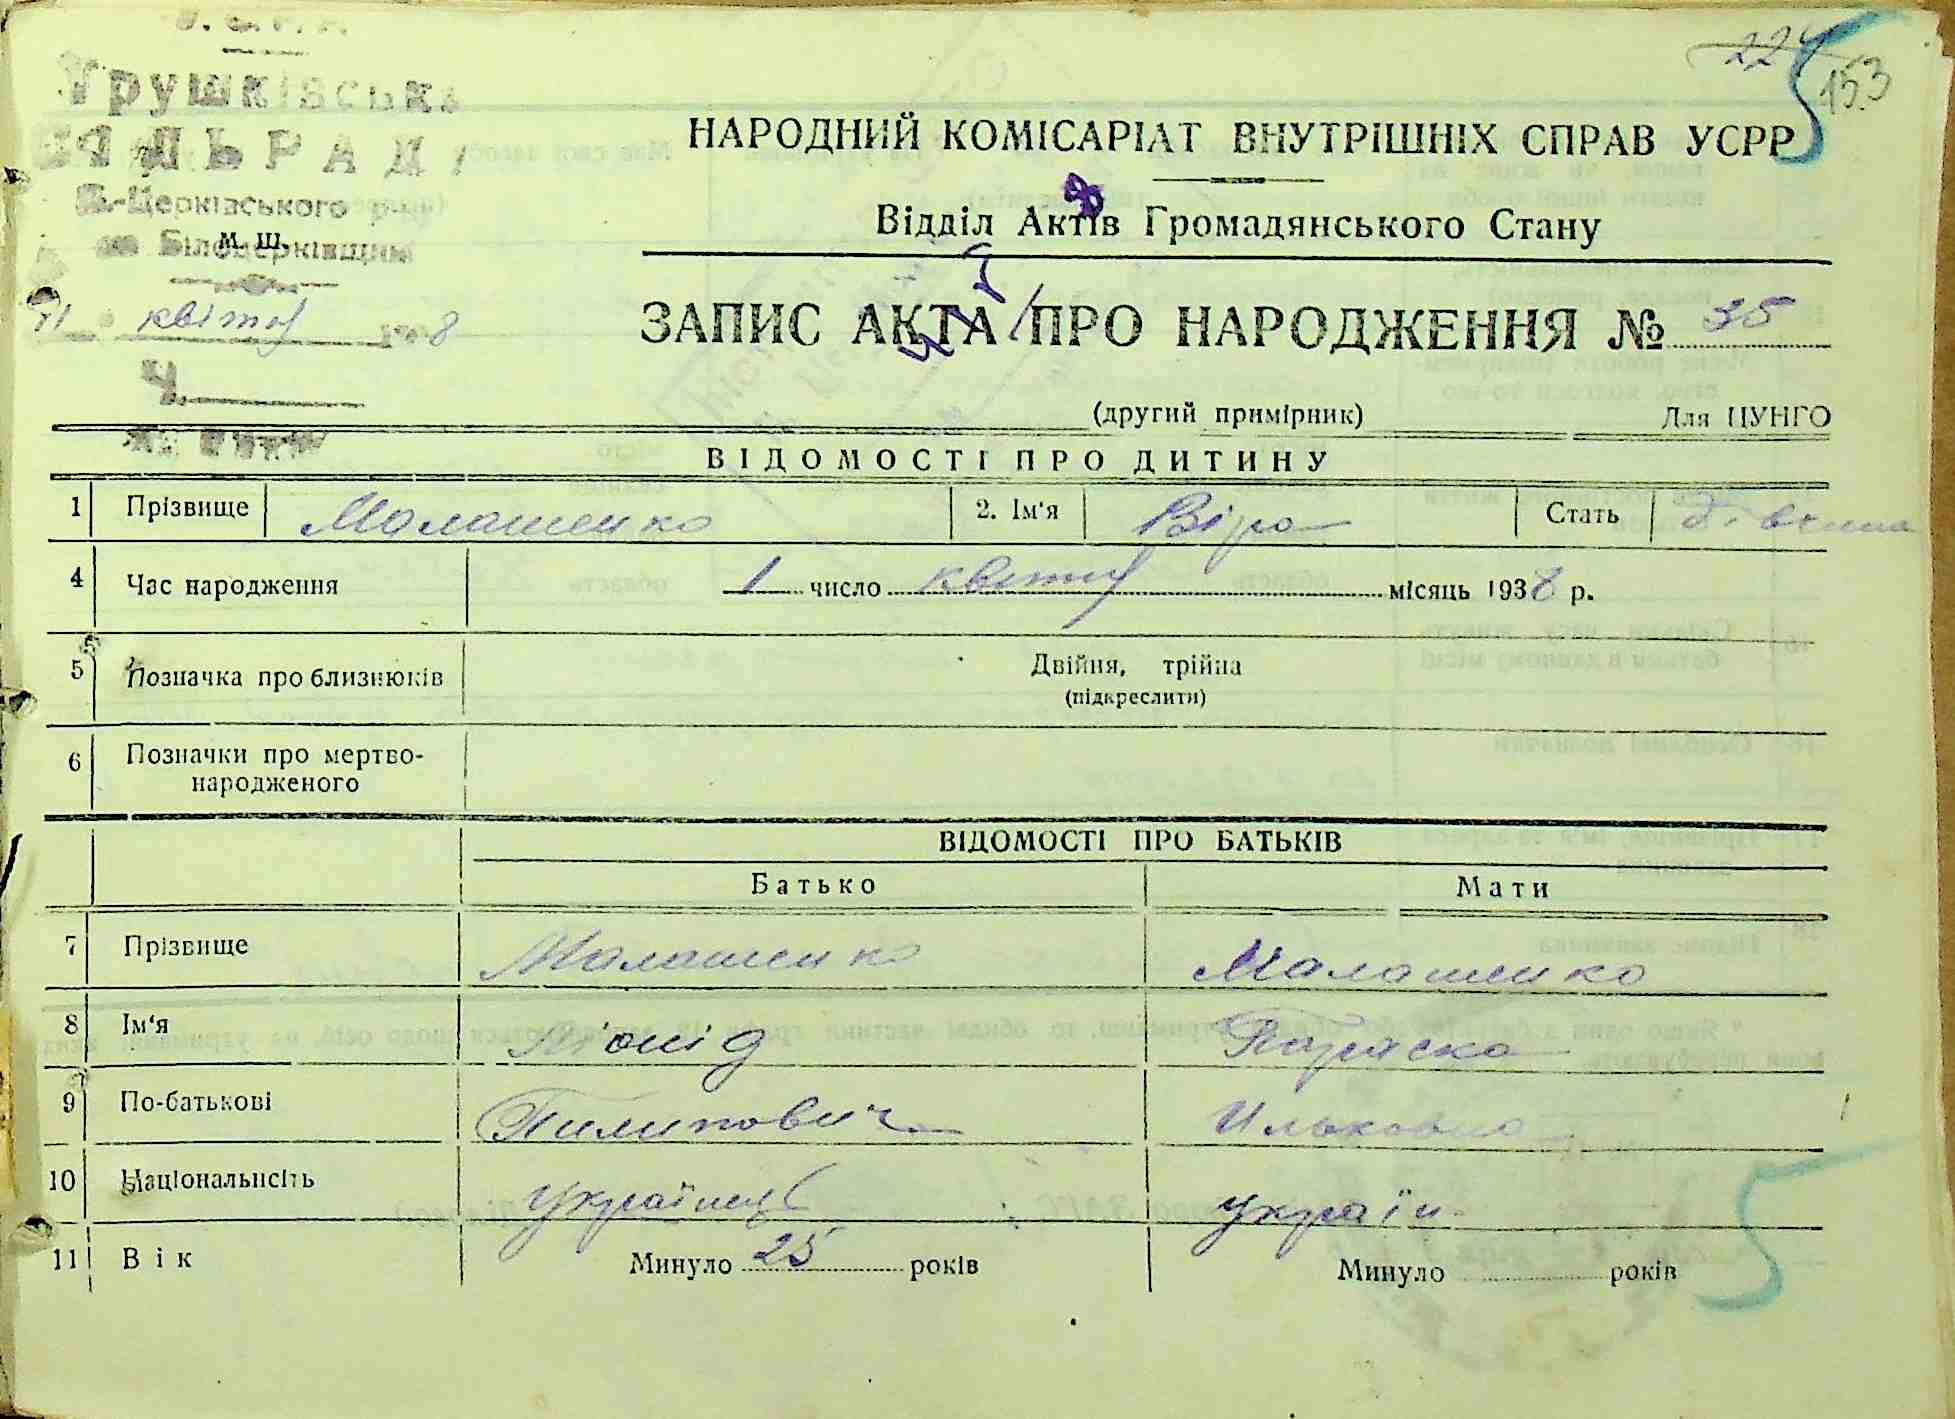 224
153
Трушківська
СІЛЬРАДА
Б.-Церківського р-ну
м. ш.
на Білоцерківщині
11 квітня 1938
Ч.
НАРОДНИЙ КОМІСАРІАТ ВНУТРІШНІХ СПРАВ УСРР
Відділ Актів Громадянського Стану
ЗАПИС АКТА ПРО НАРОДЖЕННЯ № 35
(другий примірник) Для ЦУНГО
ВІДОМОСТІ ПРО ДИТИНУ
1 Прізвище Малашенко 2. Ім'я Віра Стать Дівчина
4 Час народження 1 число квітня місяць 1938 р.
5 Позначка про близнюків Двійня, трійна
(підкреслити)
6 Позначки про мертво-
народженого
ВІДОМОСТІ ПРО БАТЬКІВ
Батько Мати
7 Прізвище Малашенко Малашенко
8 Ім'я Параска
9 По-батькові Пилипович Ильковна
10 Національність Українець україн.
11 Вік Минуло 25 років Минуло років